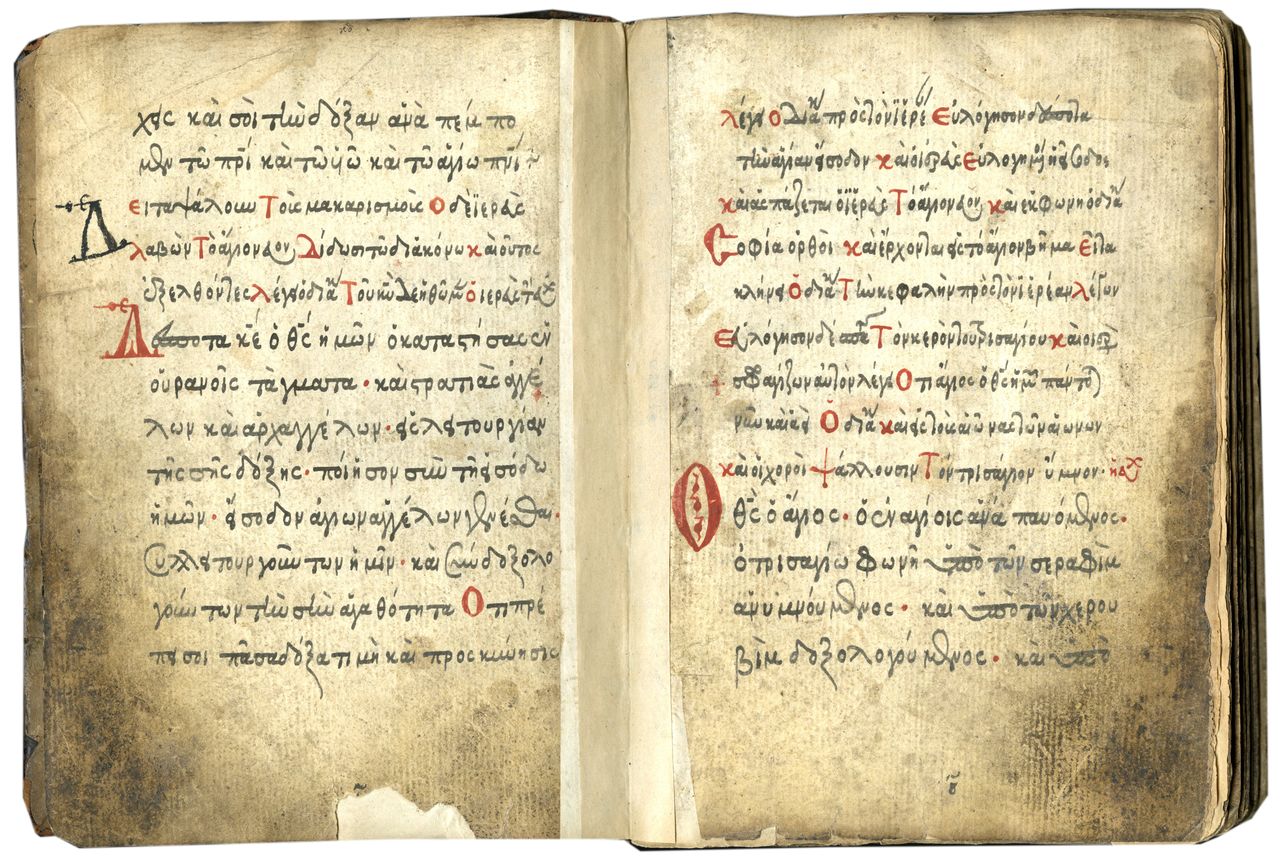 χῆς καὶ σοὶ τὴν δόξαν ἀναπέμπο
μεν τῶ πρὶ καὶ τῶ υἱῶ καὶ τῶ ἁγίω πνι
Εἶτα ψάλουν Τοῖς μακαρισμοῖς Ὁ δὲ ἱερεὺς
λαβὼν Τὸ ἅγιον Δίδωσι τῶ διακόνω καὶ οὕτως
ἐξελθόντες λέγει ὁ διακ Τοῦ κυ δεηθῶμ ὁ ἱερεὺς
Δέσποτα κε ὁ θς ἡμῶν ὁ καταστήσας ἐν
οὐρανοῖς τάγματα · καὶ στρατιὰς ἀγγέ
λων καὶ ἀρχαγγέλων · εἰς λειτουργίαν
τῆς σῆς δόξης · ποίησον σὺν τῆ εἰσόδω
ἡμῶν · εἴσοδον ἁγίων ἀγγέλων γενέσθαι ·
συλλειτουργούντων ἡμῖν · καὶ συνδοξολο
γούντων τὴν σὴν ἀγαθότητα Ὅτι πρέ
πει σοι πᾶσα δόξα τιμὴ καὶ προσκύνησις
λέγει Ὁ διακ πρὸς τὸν ἱερέ Εὐλόγησον δέσποτα
τὴν ἁγίαν εἴσοδον καὶ ὁ ἱερεὺς Εὐλογημ ἡ εἴσοδος
καὶ ἀσπάζεται ὁ ἱερεὺς Τὸ ἅγιον καὶ ἐκφωνῆ ὁ διακ
Σοφία ὀρθοί καὶ ἔρχονται εἰς τὸ ἅγιον βῆμα Εἶτα
κλίνει Ὁ διακ Τὴν κεφαλὴν πρὸς τὸν ἱερέαν λέγων
Εὐλόγησον δέσποτα Τὸν κερὸν τοῦ τρισαγίου καὶ ὁ ιερ
σφραγίζων αὐτὸν λέγει Ὅτι ἅγιος ὁ θς ἡμ πάντο
νῦν καὶ ἀεὶ Ὁ διακ καὶ εἰς τοὺς αἰῶνας τῶν αἰώνων
καὶ οἱ χοροὶ ψάλλουσιν Τὸν τρισάγιον ὕμνον ·
Ὁ θς ὁ ἅγιος · ὁ ἐν ἁγίοις ἀναπαυόμενος ·
ὁ τρισαγίω φωνῆ ὑπὸ τῶν σεραφὶμ
ἀνυμνούμενος · καὶ ὑπὸ τῶν χερου
βὶμ δοξολογούμενος · καὶ ὑπὸ